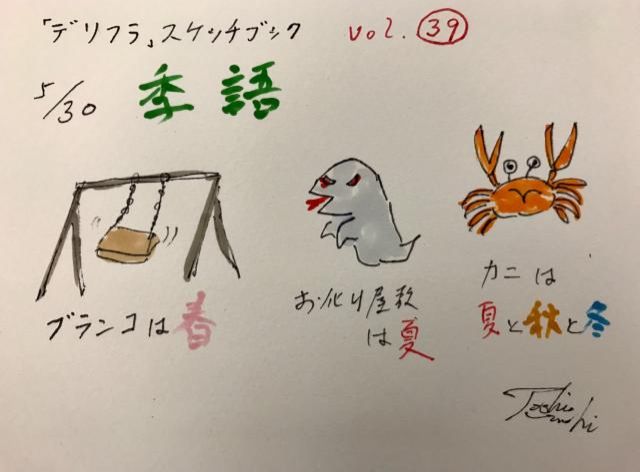 「デリフラ」スケッチブック vol. 39
5/30 季語
ブランコは春
お化け屋敷
は夏
カニは
夏と秋と冬